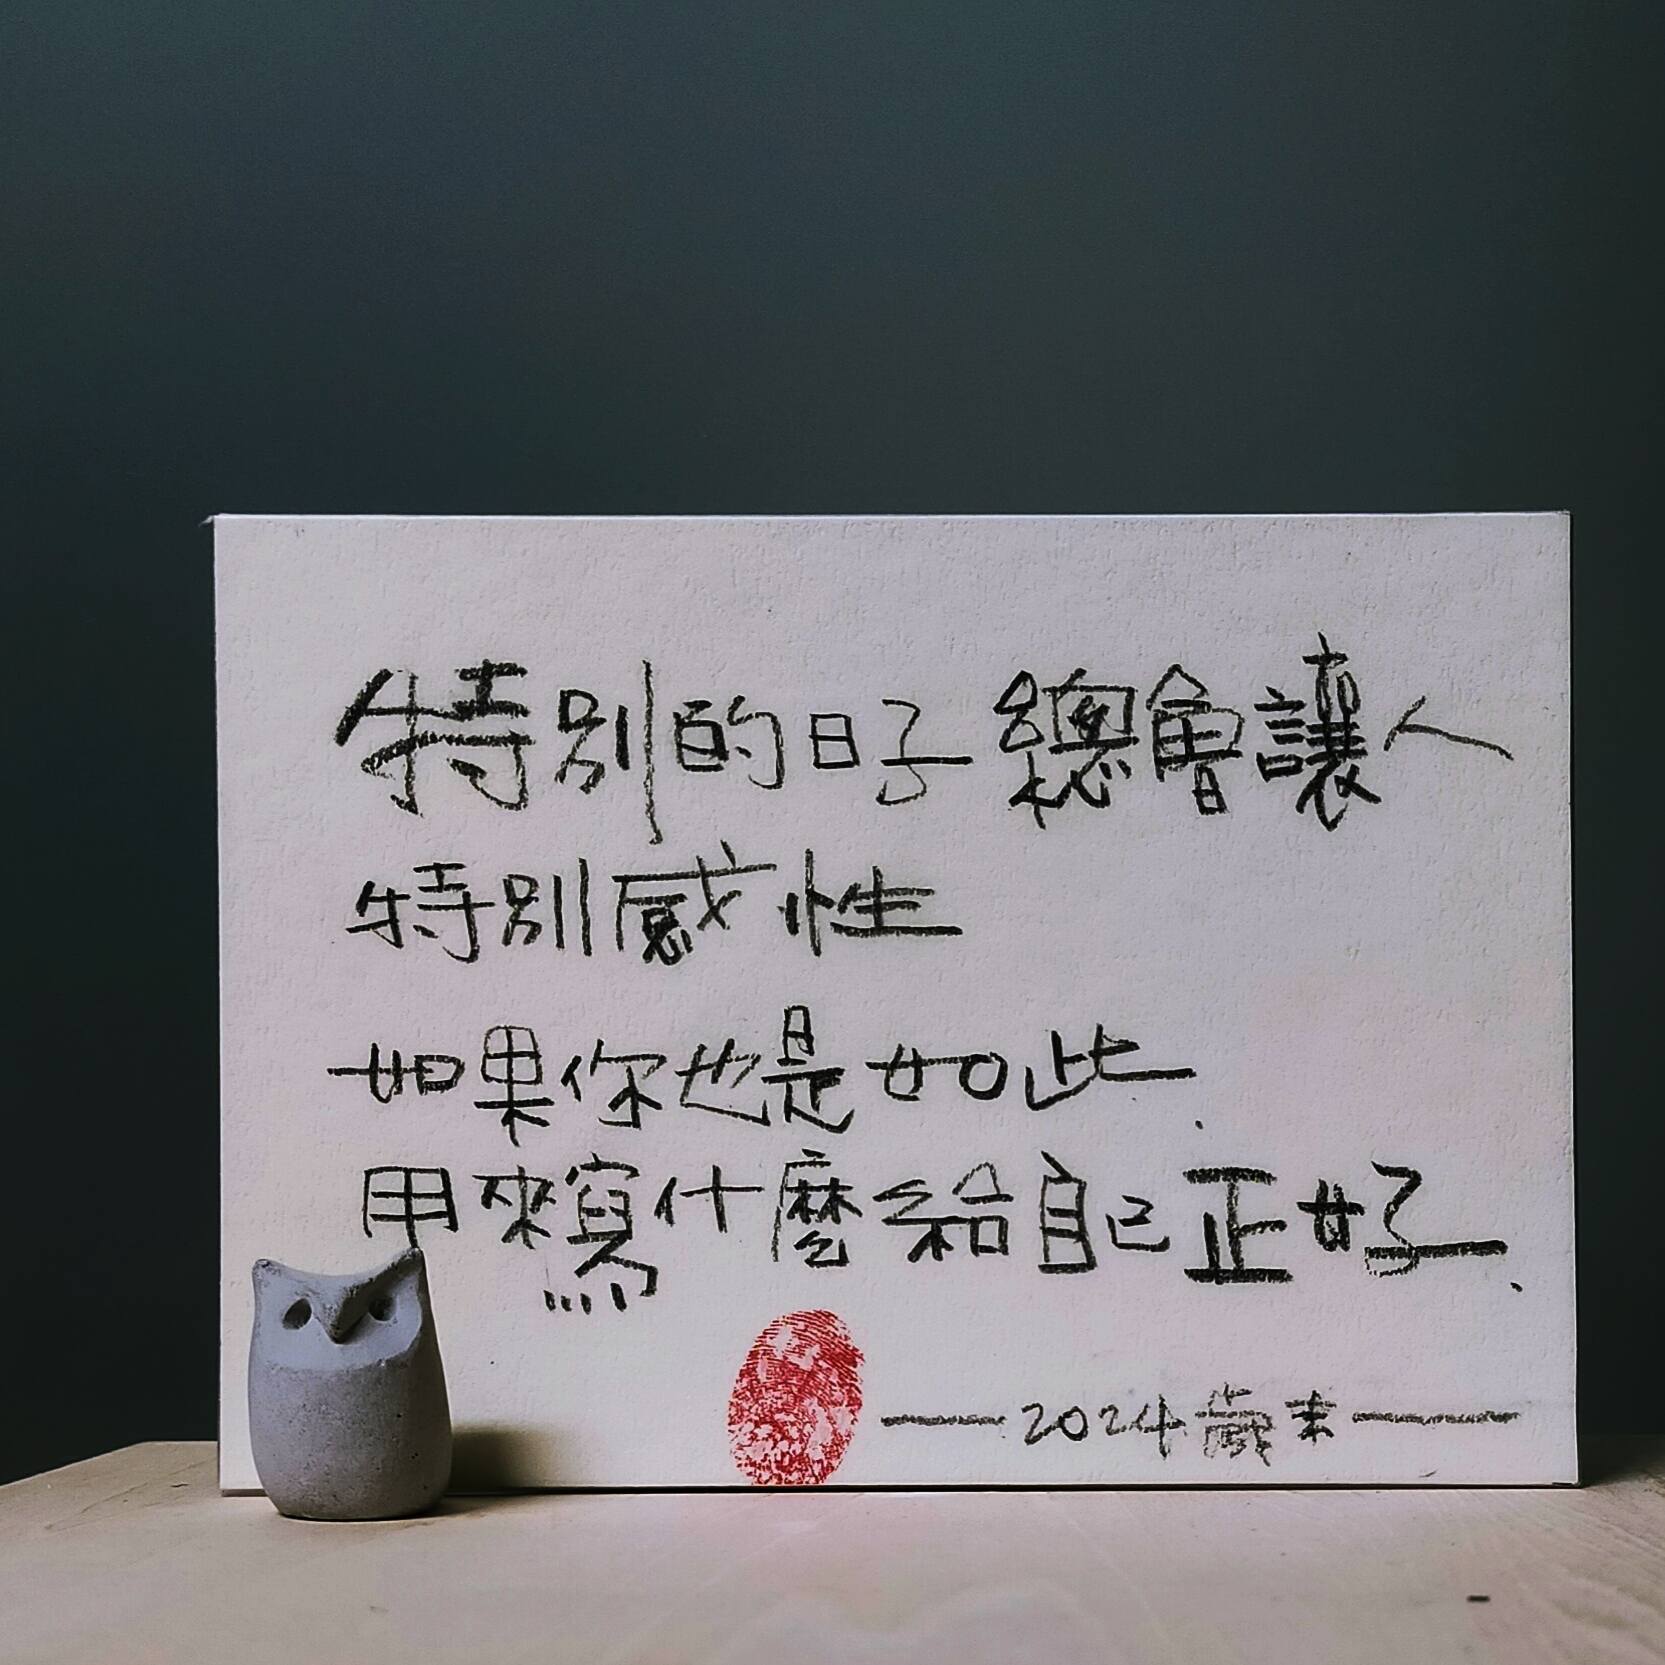 特別的日子總會讓人
特別感性
如果你也是如此.
用來寫什麼給自己正好.
——2024歲末——